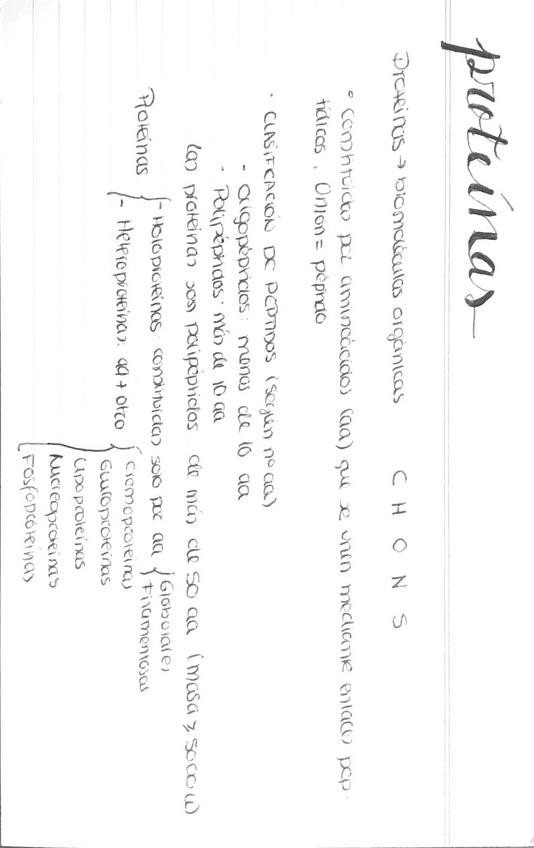 proteínas
Proteínas → biomoléculas orgánicas C H O N S
• Constituidas por aminoácidos (aa) que se unen mediante enlaces pep-
tídicos. Unión = péptido
• CLASIFICACIÓN DE PÉPTIDOS (según nº aa)
- Oligopéptidos: menos de 10 aa
- Polipéptidos: más de 10 aa
Las proteínas son polipéptidos de más de 50 aa (masa ≥ 5000 u)
Proteínas { - Holoproteínas: constituidas solo por aa { Globulares
Filamentosas
- Heteroproteínas: aa + otro { Cromoproteínas
Glucoproteínas
Lipoproteínas
Nucleoproteínas
Fosfoproteínas